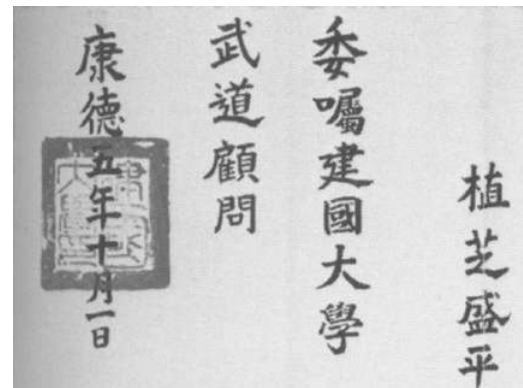 植芝盛平
委嘱建國大學
武道顧問
康德五年十月一日